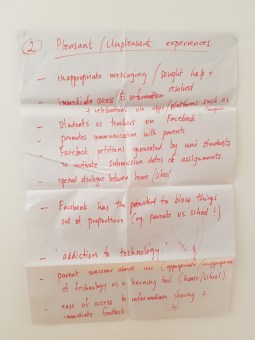 ② Pleasant / Unpleasant experiences.
- inappropriate messaging / sought help + resolved
- immediate access to information
+ celebrations via apps/platforms such as
- Students vs teachers on Facebook
- promotes communication with parents
- Facebook petitions generated by uni students
to motivate submission dates of assignments.
- opened dialogue between home/school
- Facebook has the potential to blow things
out of proportion (eg. parents vs school!)
- 'addiction to technology'
- parent concerns about use (appropriate/inappropriate
of technology as a learning tool. (home/school).
- ease of access to information sharing +
immediate feedback